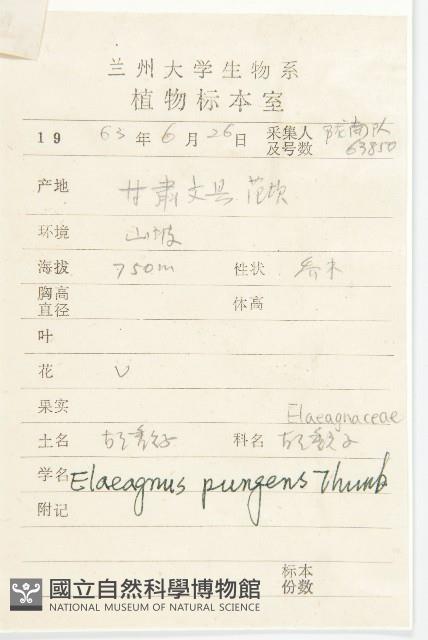 兰州大学生物系
植物标本室
19 63 年 6 月 26 日 采集人及号数 陇南队 63850
产地 甘肃文县 范坝
环境 山坡
海拔 750m 性状 乔木
胸高直径 体高
叶
花 V
果实
Elaeagnaceae
土名 胡秃子 科名 胡秃子
学名 Elaeagnus pungens Thunb
附记
标本份数
國立自然科學博物館
NATIONAL MUSEUM OF NATURAL SCIENCE